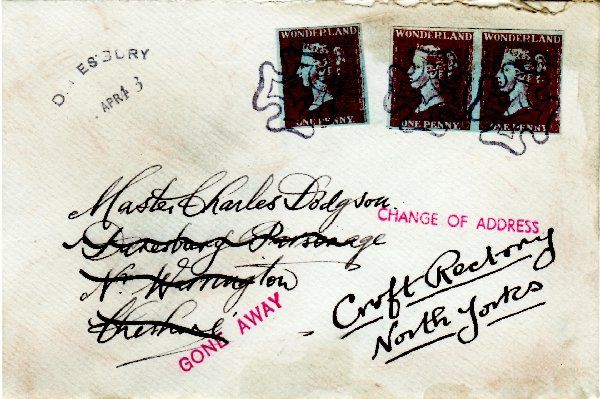 DARESBURY
APR 4 3
WONDERLAND
ONE PENNY
WONDERLAND
ONE PENNY
WONDERLAND
ONE PENNY
Master Charles Dodgson
CHANGE OF ADDRESS
Daresburg Parsonage
Nr Warrington
Cheshire
GONE AWAY
Croft Rectory
North Yorks